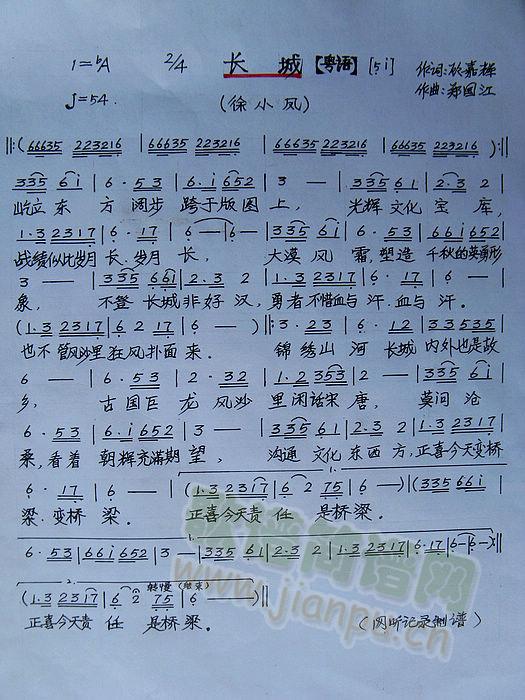 1=♭A 2/4 长城【粤语】[5 i] 作词:於嘉辉
♩=54. (徐小凤) 作曲:郑国江
‖:(66635 223216 | 66635 223216 | 66635 223216 | 66635 223216 ):‖
335 6i | 6·53 | 6·i 652 | 3 — | 335 61 | 2·3 2 |
屹立东方阔步跨于版图上,光辉文化宝库,
1·3 2317 | 6·17 | 6— | 6— | 335 6i | 6·53 | 66i 652 |
战绩似比岁月长.岁月长,大漠风霜,塑造千秋的英勇形
3 — | 335 661 | 2·3 2 | 1·3 2317 | 6·17 | 6 — |
象,不登长城非好汉,勇者不惜血与汗.血与汗.
(1·3 2317 | 6 2 17 | 6 —)‖:3·23 | 6·12 | 335535 |
也不管风沙里狂风扑面来.锦绣山河长城内外也是故
6 — | 6·53 | 2·32 | 1·2 353 | 2 — | 335 6i |
乡,古国巨龙风沙里闲话宋唐,莫问沧
6·53 | 6·i 652 | 3 — | 335 61 | 2·3 2 | 1·3 2317 |
桑,看着朝辉充满期望,沟通文化东西方,正喜今天变桥
6·17 | 6 — | (1·3 2317 | 6 2 75 | 6 —)|(335 661 |
梁.变桥梁.正喜今天责任是桥梁.
1.
6·53 | 66i 652 | 3 — | 335 61 | 2·3 2 | 1·3 2317 | 6·17 | 6— | 6—):‖
2. 转慢(结束)
(1·3 2317 | 6 2 75 | 6 —)‖
正喜今天责任是桥梁.(网听记录制谱)
www.jianpu.cn